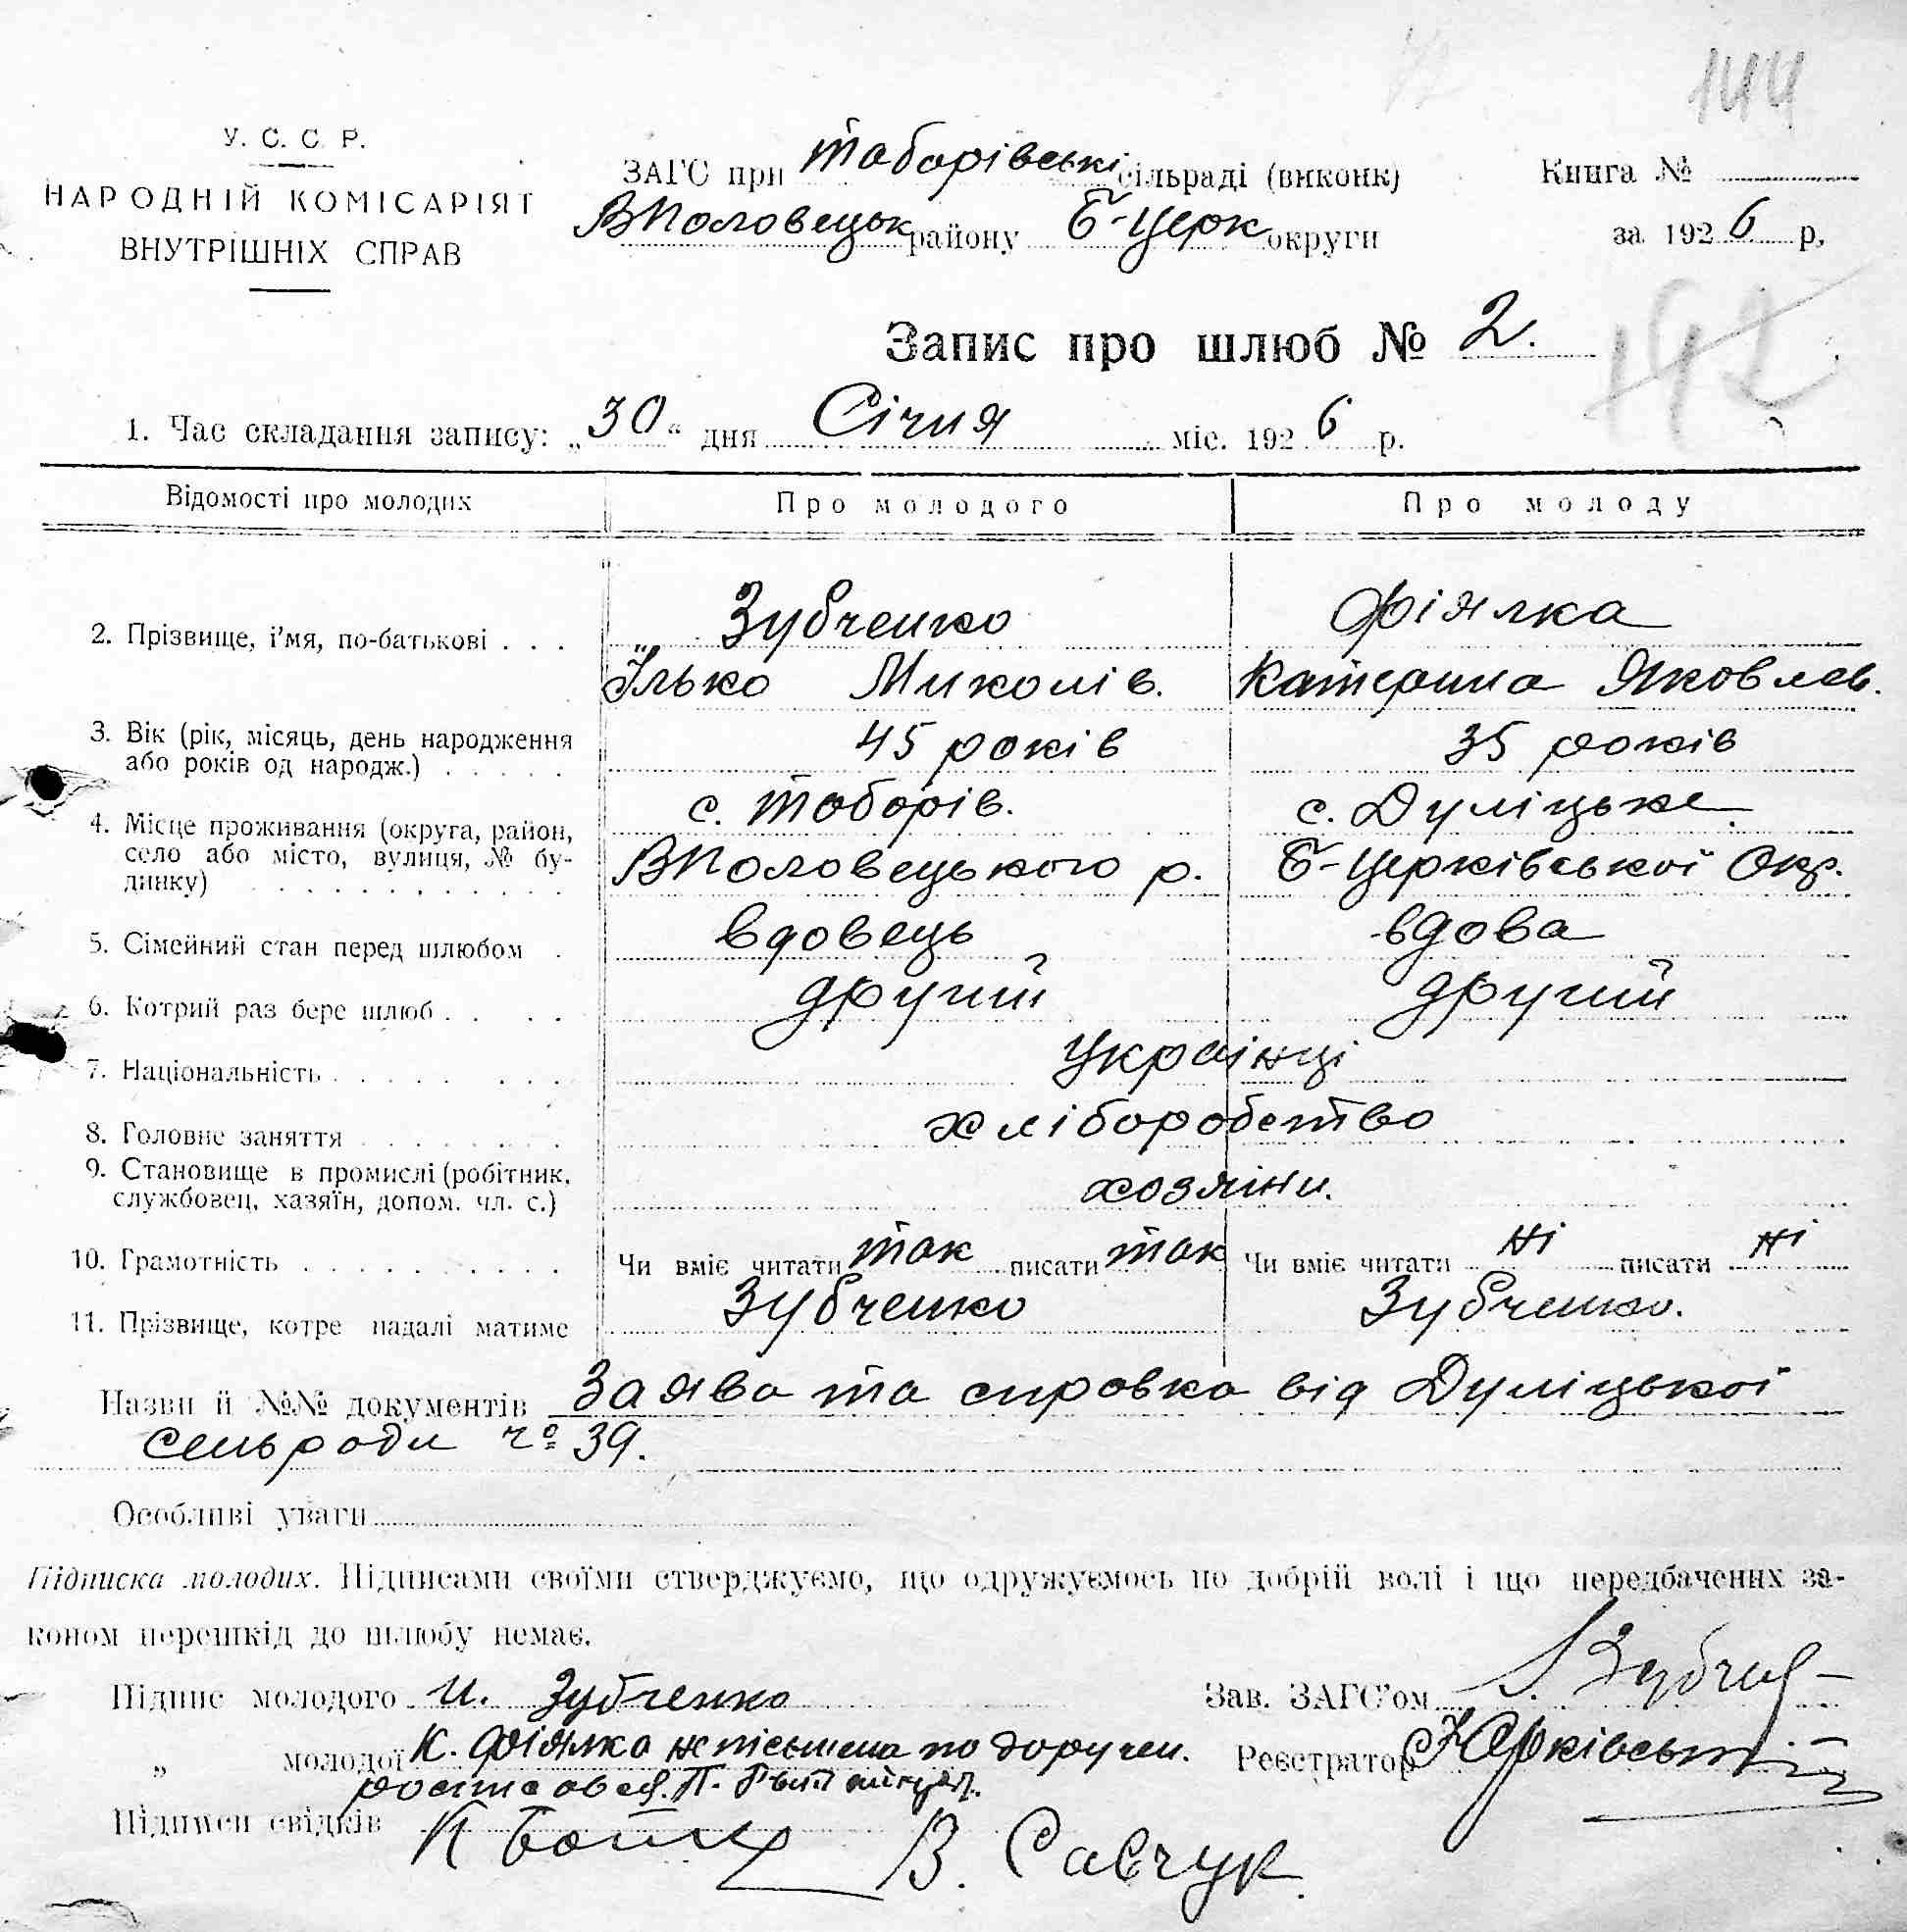 144
У. С. С. Р.
НАРОДНІЙ КОМІСАРІЯТ
ВНУТРІШНІХ СПРАВ
ЗАГС при Таборівські сільраді (виконк)
ВПоловецьк району Б-Церк округи
Книга №
за 1926 р,
Запис про шлюб № 2.
142
1. Час складання запису: „30“ дня Січня міс. 1926 р.
Відомості про молодих Про молодого Про молоду
2. Прізвище, і'мя, по-батькові . . . Зубченко Фіялка
Ілько Миколів. Катерина Яковлев.
3. Вік (рік, місяць, день народження 45 років 35 років
або років од народж.) . . . . .
4. Місце проживання (округа, район, с. Таборів. с. Дуліцьке
село або місто, вулиця, № бу- ВПоловецького р. Б-Церківської Окр.
динку) . . . . . . . . . . . .
5. Сімейний стан перед шлюбом . вдовець вдова
6. Котрий раз бере шлюб . . . . другий другий
7. Національність . . . . . . . українці
8. Головне заняття . . . . . . . хліборобство
9. Становище в промислі (робітник, хозяіни.
службовец, хазяїн, допом. чл. с.)
10. Грамотність . . . . . . . . . . Чи вміє читати так писати так Чи вміє читати ні писати ні
11. Прізвище, котре надалі матиме Зубченко Зубченко.
Назви й №№ документів Заява та справка від Дуліцької
сельради ч० 39.
Особливі уваги
Підписка молодих. Підписами своїми стверджуємо, що одружуємось по добрій волі і що передбачених за-
коном перешкід до шлюбу немає.
Підпис молодого И. Зубченко Зав. ЗАГС'ом
„ молодої К. Фіялка не пісьмена по доручен. Реєстратор
Підписи свідків
В. Савчук.